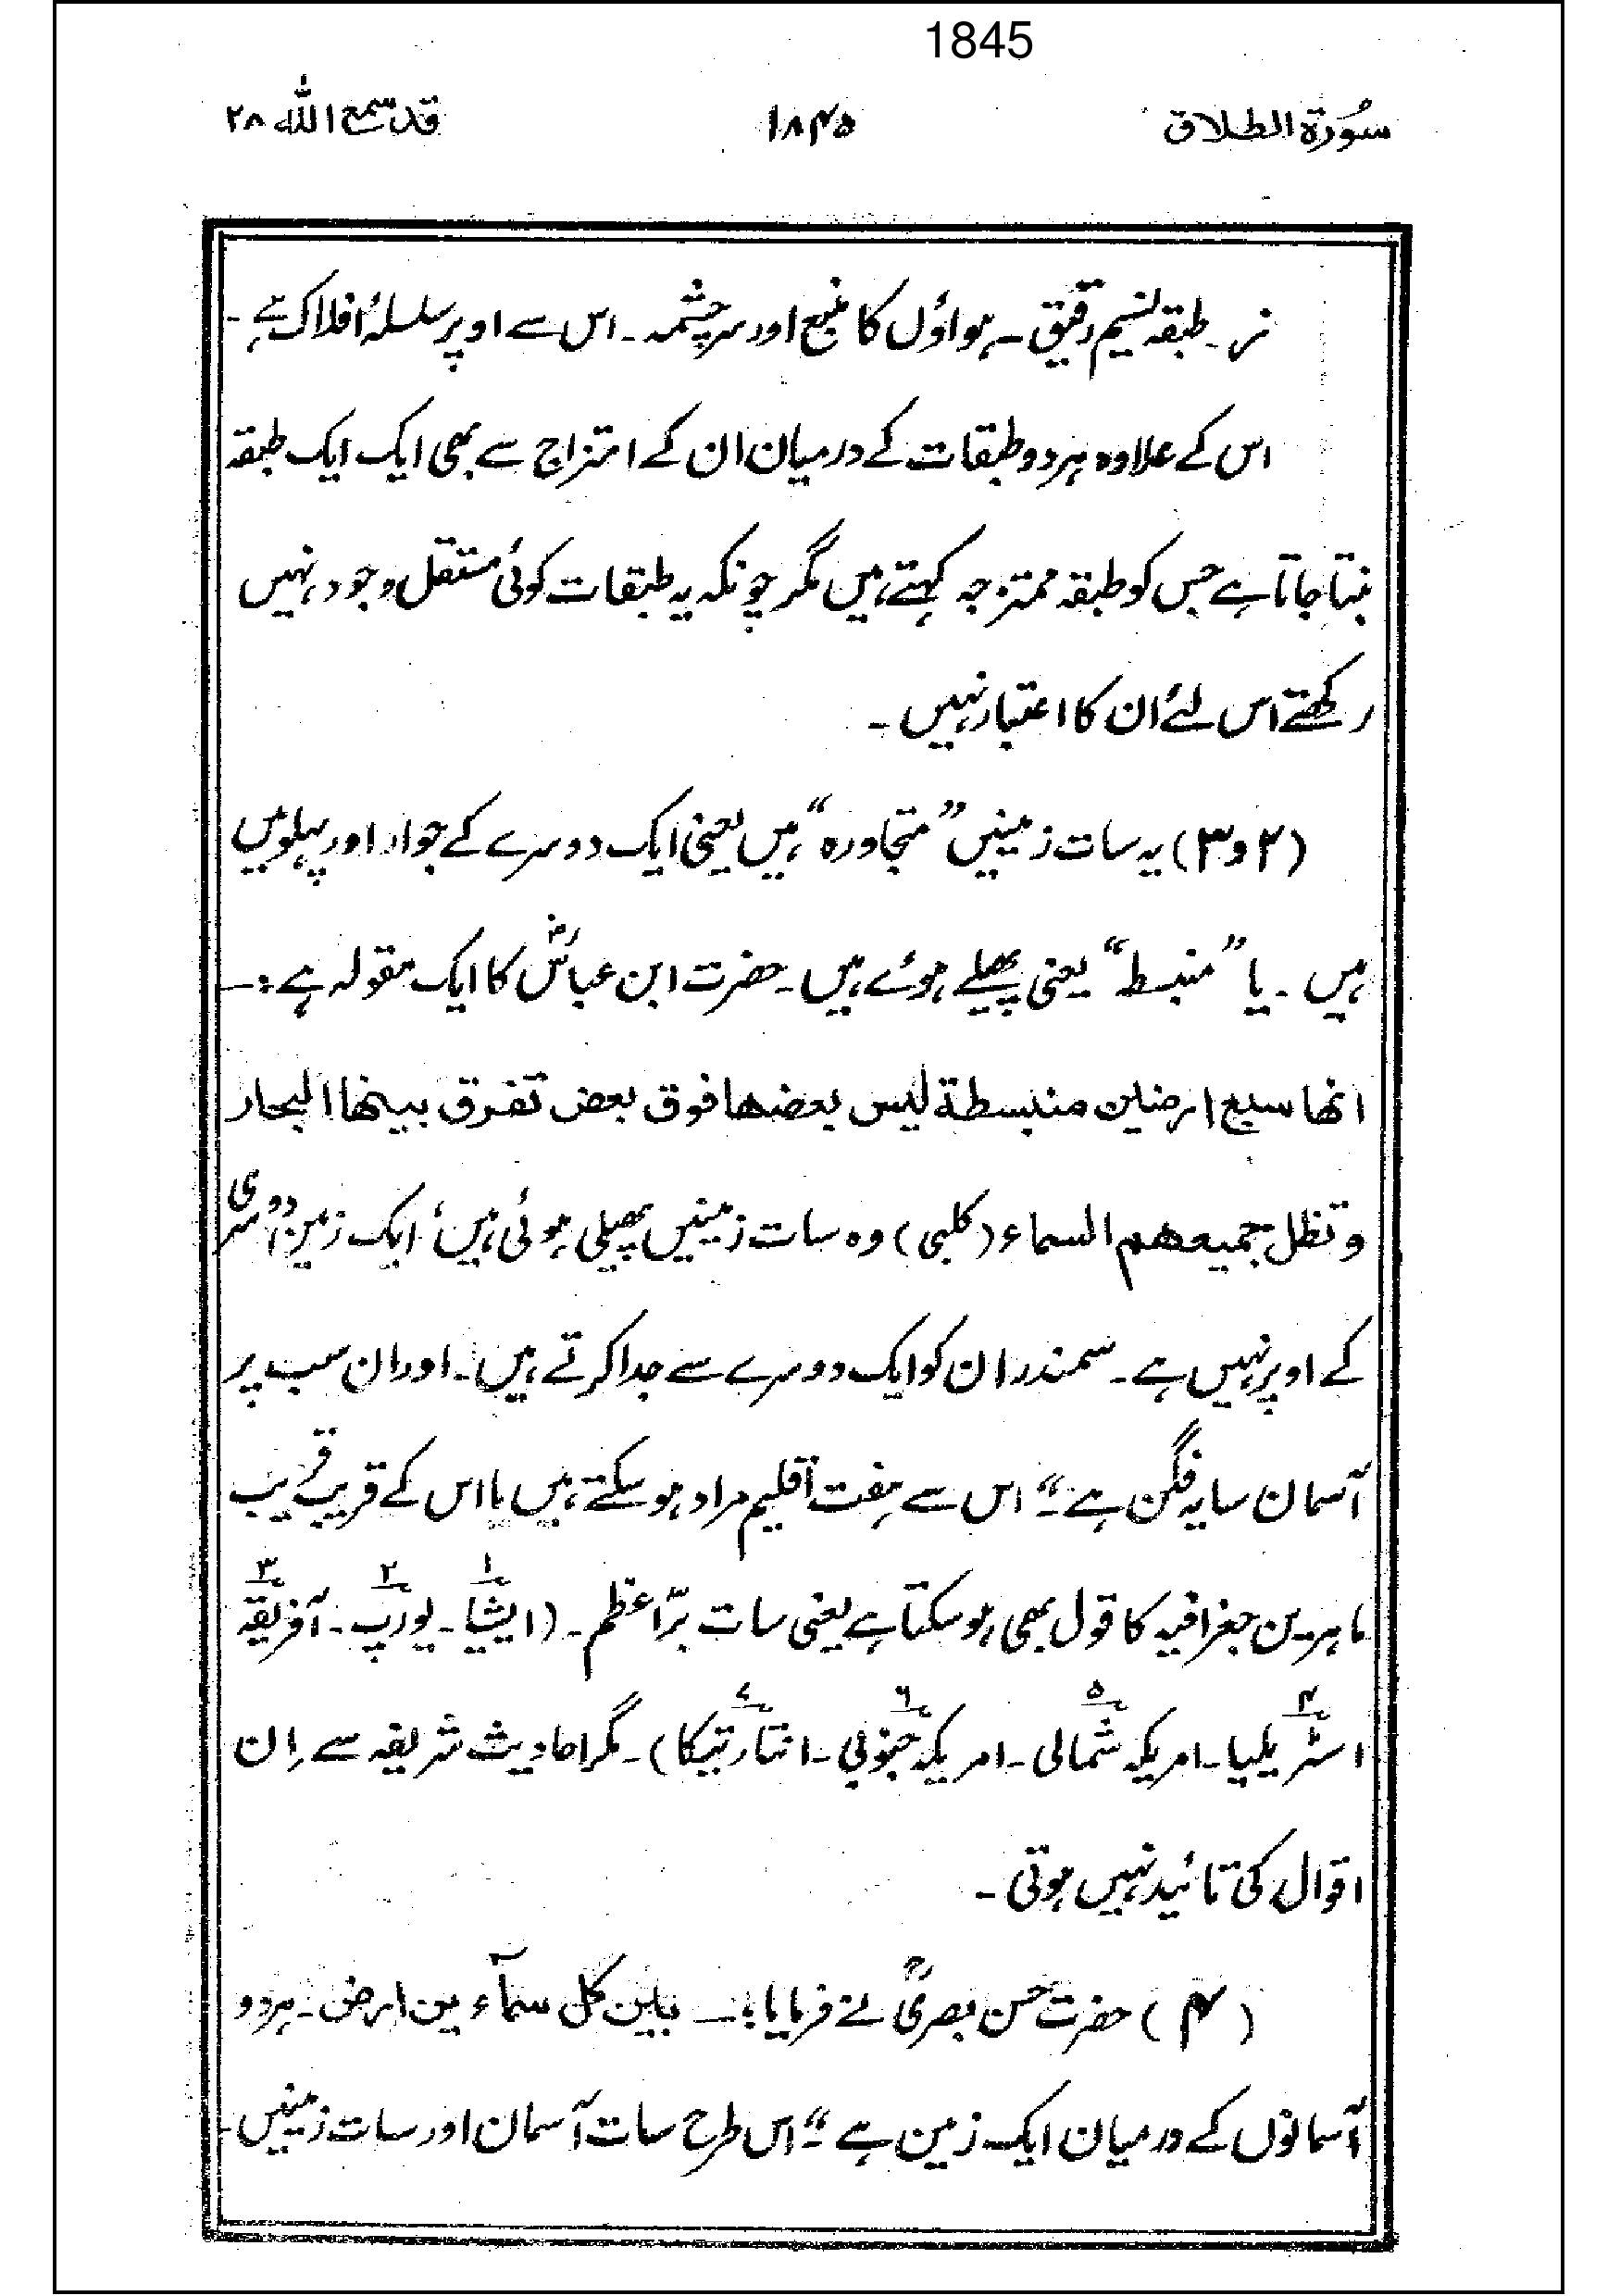 1845
سُورۃ الطلاق ۱۸۴۵ قد سمع اللہ ۲۸
ز۔ طبقہ نسیم رقیق۔ ہواؤں کا منبع اور سرچشمہ۔ اس سے اوپر سلسلۂ افلاک ہے۔
اس کے علاوہ ہر دو طبقات کے درمیان ان کے امتزاج سے بھی ایک ایک طبقہ
بنتا جاتا ہے جس کو طبقہ ممتزجہ کہتے ہیں مگر چونکہ یہ طبقات کوئی مستقل وجود نہیں
رکھتے اس لئے ان کا اعتبار نہیں۔
(۲ و ۳) یہ سات زمینیں ”متجاورہ“ ہیں یعنی ایک دوسرے کے جوار اور پہلو میں
ہیں۔ یا ”منبسط“ یعنی پھیلے ہوئے ہیں۔ حضرت ابن عباسؓ کا ایک مقولہ ہے:۔
انھا سبع ارضین منبسطۃ لیس بعضھا فوق بعض تفرق بینھا البحار
و تظل جمیعھم السماء (کلبی) وہ سات زمینیں پھیلی ہوئی ہیں، ایک زمین دوسری
کے اوپر نہیں ہے۔ سمندر ان کو ایک دوسرے سے جدا کرتے ہیں۔ اور ان سب پر
آسمان سایہ فگن ہے۔“ اس سے ہفت اقلیم مراد ہو سکتے ہیں یا اس کے قریب قریب
ماہرین جغرافیہ کا قول بھی ہو سکتا ہے یعنی سات برّاعظم۔ (ایشیا۱۔ یورپ۲۔ آفریقہ۳
اسٹریلیا۴۔ امریکہ شمالی۵۔ امریکہ جنوبی۶۔ انتارتیکا۷)۔ مگر احادیث شریفہ سے اِن
اقوال کی تائید نہیں ہوتی۔
(۴) حضرت حسن بصریؒ نے فرمایا:۔ بین کل سمآء ین ارض۔ ہر دو
آسمانوں کے درمیان ایک زمین ہے۔“ اس طرح سات آسمان اور سات زمینیں۔